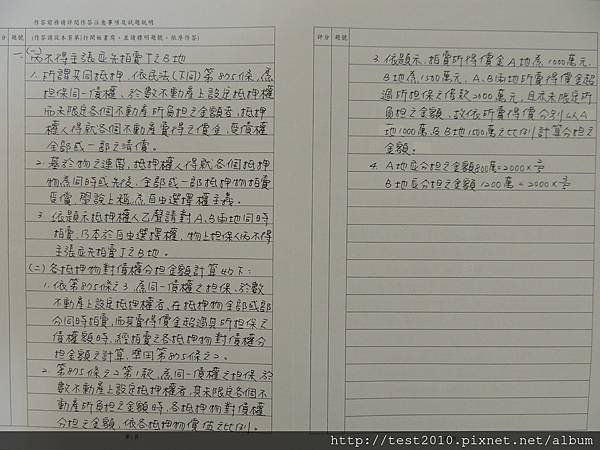 作答前務請詳閱作答注意事項及試題說明
分 題號 (作答請從本頁第1行開始書寫，並請標明題號，依序作答)
一 (一)
丙不得主張應先拍賣丁之B地
1. 所謂共同抵押，依民法(下同)第875條，為
擔保同一債權，於數不動產上設定抵押權
而未限定各個不動產所負擔之金額者，抵押
權人得就各個不動產賣得之價金，受債權
全部或一部之清償。
2. 基於物之連帶，抵押權人得就各個抵押
物為同時或先後、全部或一部抵押物拍賣
受償，學說上稱為自由選擇權主義。
3. 依題示抵押權人乙聲請對A、B兩地同時
拍賣，乃本於自由選擇權，物上擔保人丙不得
主張應先拍賣丁之B地
(二) 各抵押物對債權分擔金額計算如下：
1. 依第875條之3，為同一債權之擔保，於數
不動產上設定抵押權者，在抵押物全部或部
分同時拍賣，而其賣得價金超過其所擔保之
債權額時，經拍賣之各抵押物對債權分
擔金額之計算，準用第875條之2。
2. 第875條之2第1款，為同一債權之擔保，於
數不動產上設定抵押權者，其未限定各個不
動產所負擔之金額時，各抵押物對債權
分擔之金額，依各抵押物價值之比例。
評分 題號
3. 依題示，拍賣所得價金A地為1000萬元，
B地為1500萬元，A、B兩地所賣得價金超
過所擔保之借款2000萬元，且亦未限定所
負擔之金額，故依所賣得價金分別以A
地1000萬及B地1500萬之比例計算分擔之
金額。
4. A地應分擔之金額800萬=2000×2/5
B地應分擔之金額1200萬=2000×3/5
http://test2010.pixnet.net/album